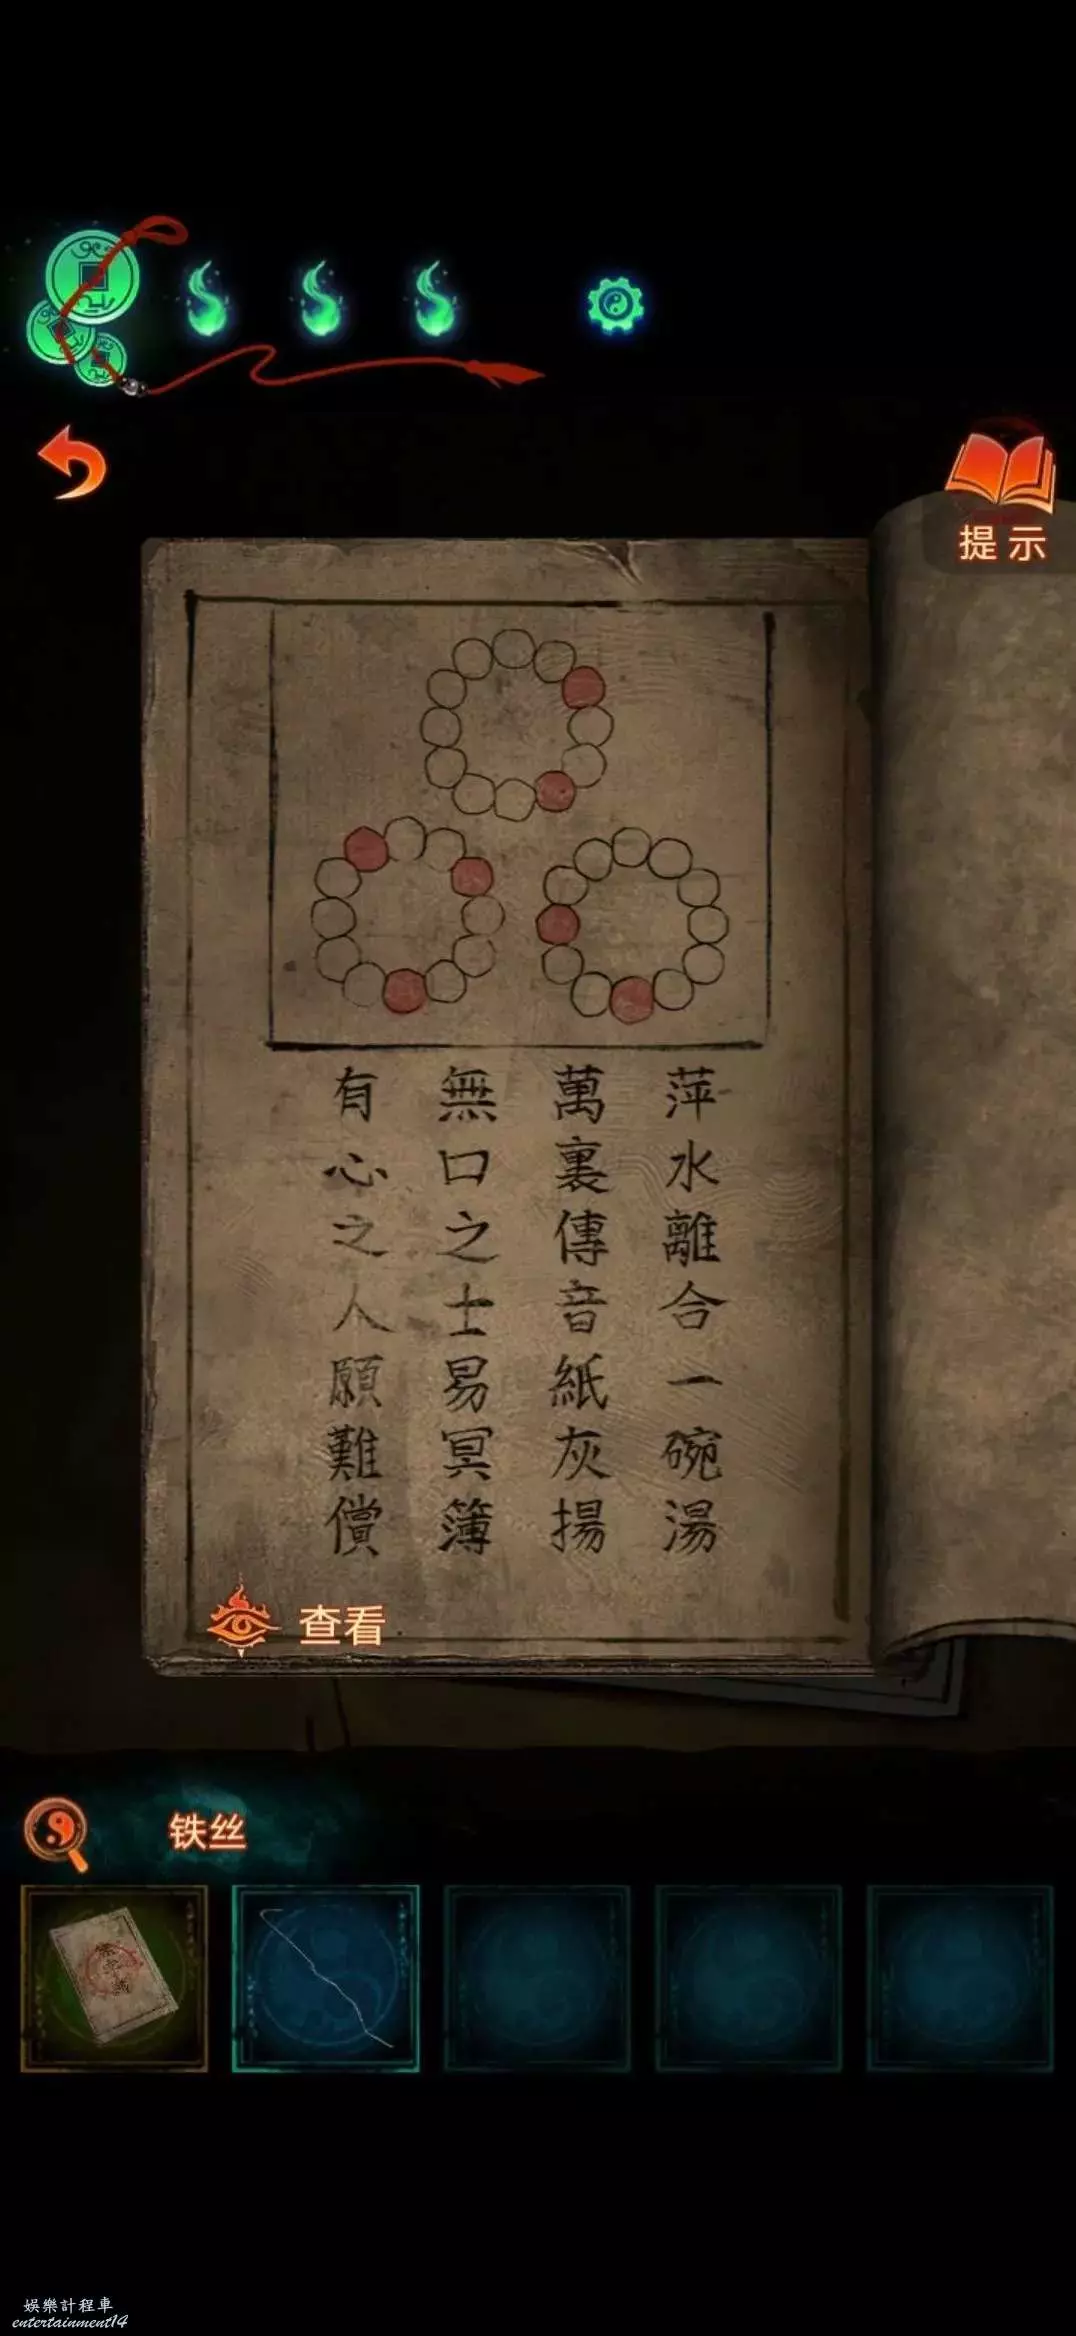 提示
萍水離合一碗湯
萬裏傳音紙灰揚
無口之士易冥簿
有心之人願難償
查看
铁丝
娛樂計程車
entertainment14